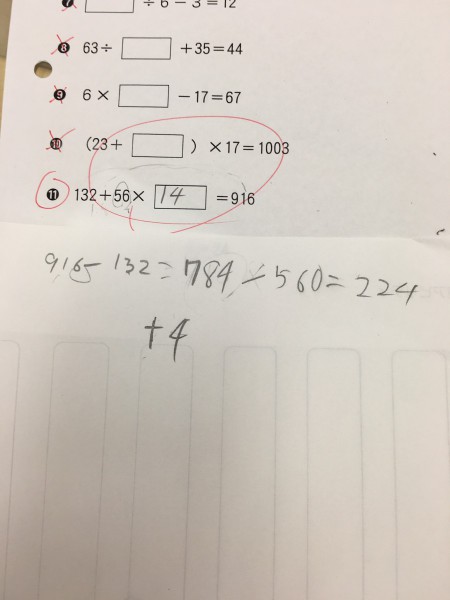 ❼ □÷6－3＝12
❽ 63÷□＋35＝44
❾ 6×□－17＝67
❿ (23＋□)×17＝1003
⓫ 132＋56×14＝916
916-132=784-560=224
+4